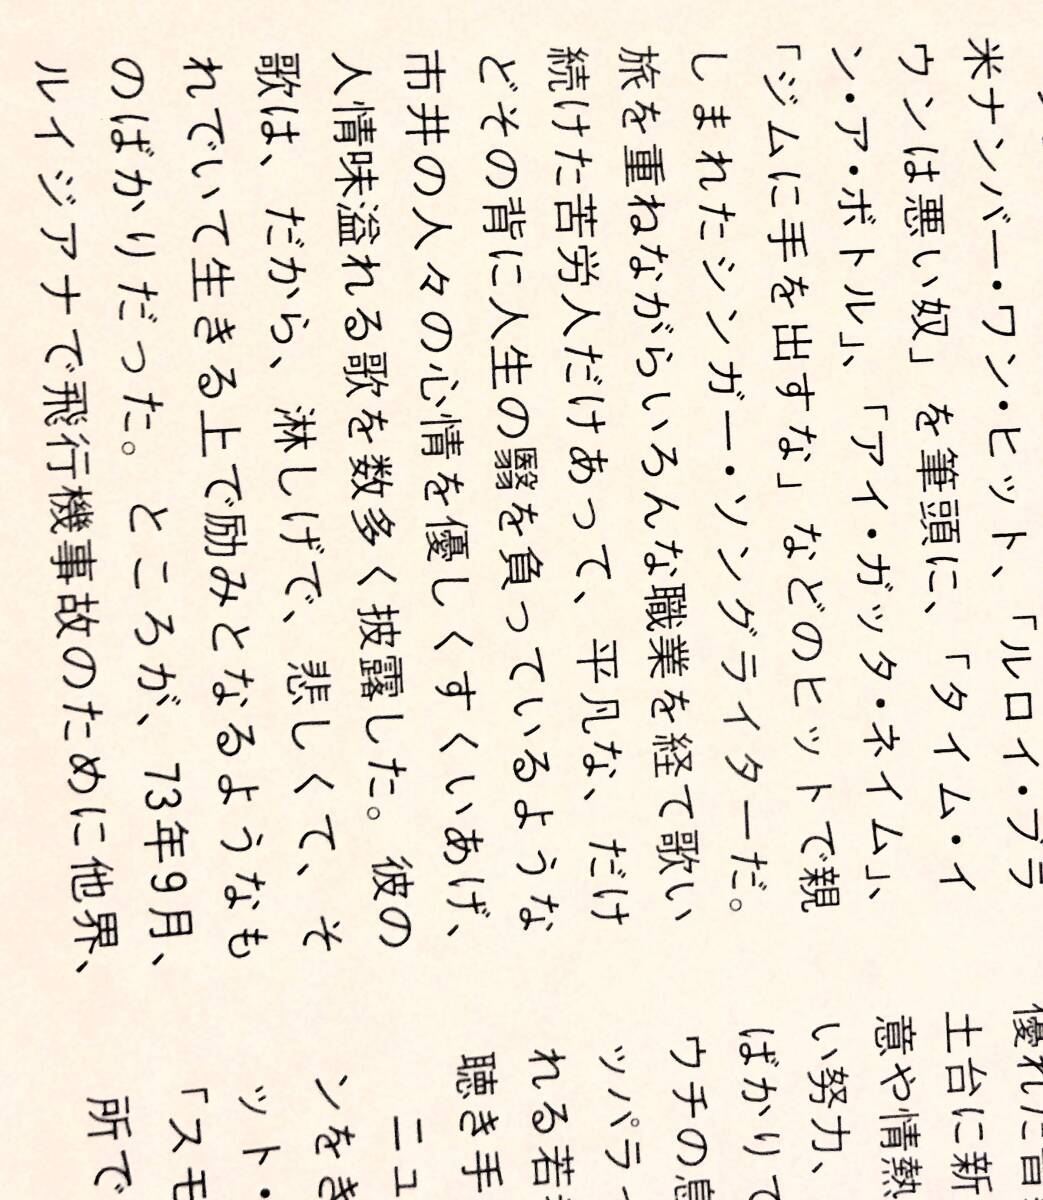 米ナンバー・ワン・ヒット、「ルロイ・ブラ
ウンは悪い奴」を筆頭に、「タイム・イ
ン・ア・ボトル」、「アイ・ガッタ・ネイム」、
「ジムに手を出すな」などのヒットで親
しまれたシンガー・ソングライターだ。
旅を重ねながらいろんな職業を経て歌い
続けた苦労人だけあって、平凡な、だけ
どその背に人生の翳を負っているような
市井の人々の心情を優しくすくいあげ、
人情味溢れる歌を数多く披露した。彼の
歌は、だから、淋しげで、悲しくて、そ
れでいて生きる上で励みとなるようなも
のばかりだった。ところが、73年9月、
ルイジアナで飛行機事故のために他界、
優れた音
土台に新
意や情熱
い努力、
ばかりて
ウチの息
ッパラ
れる若
聴き手
ニュ
ンをき
ット・
「スモ
所で